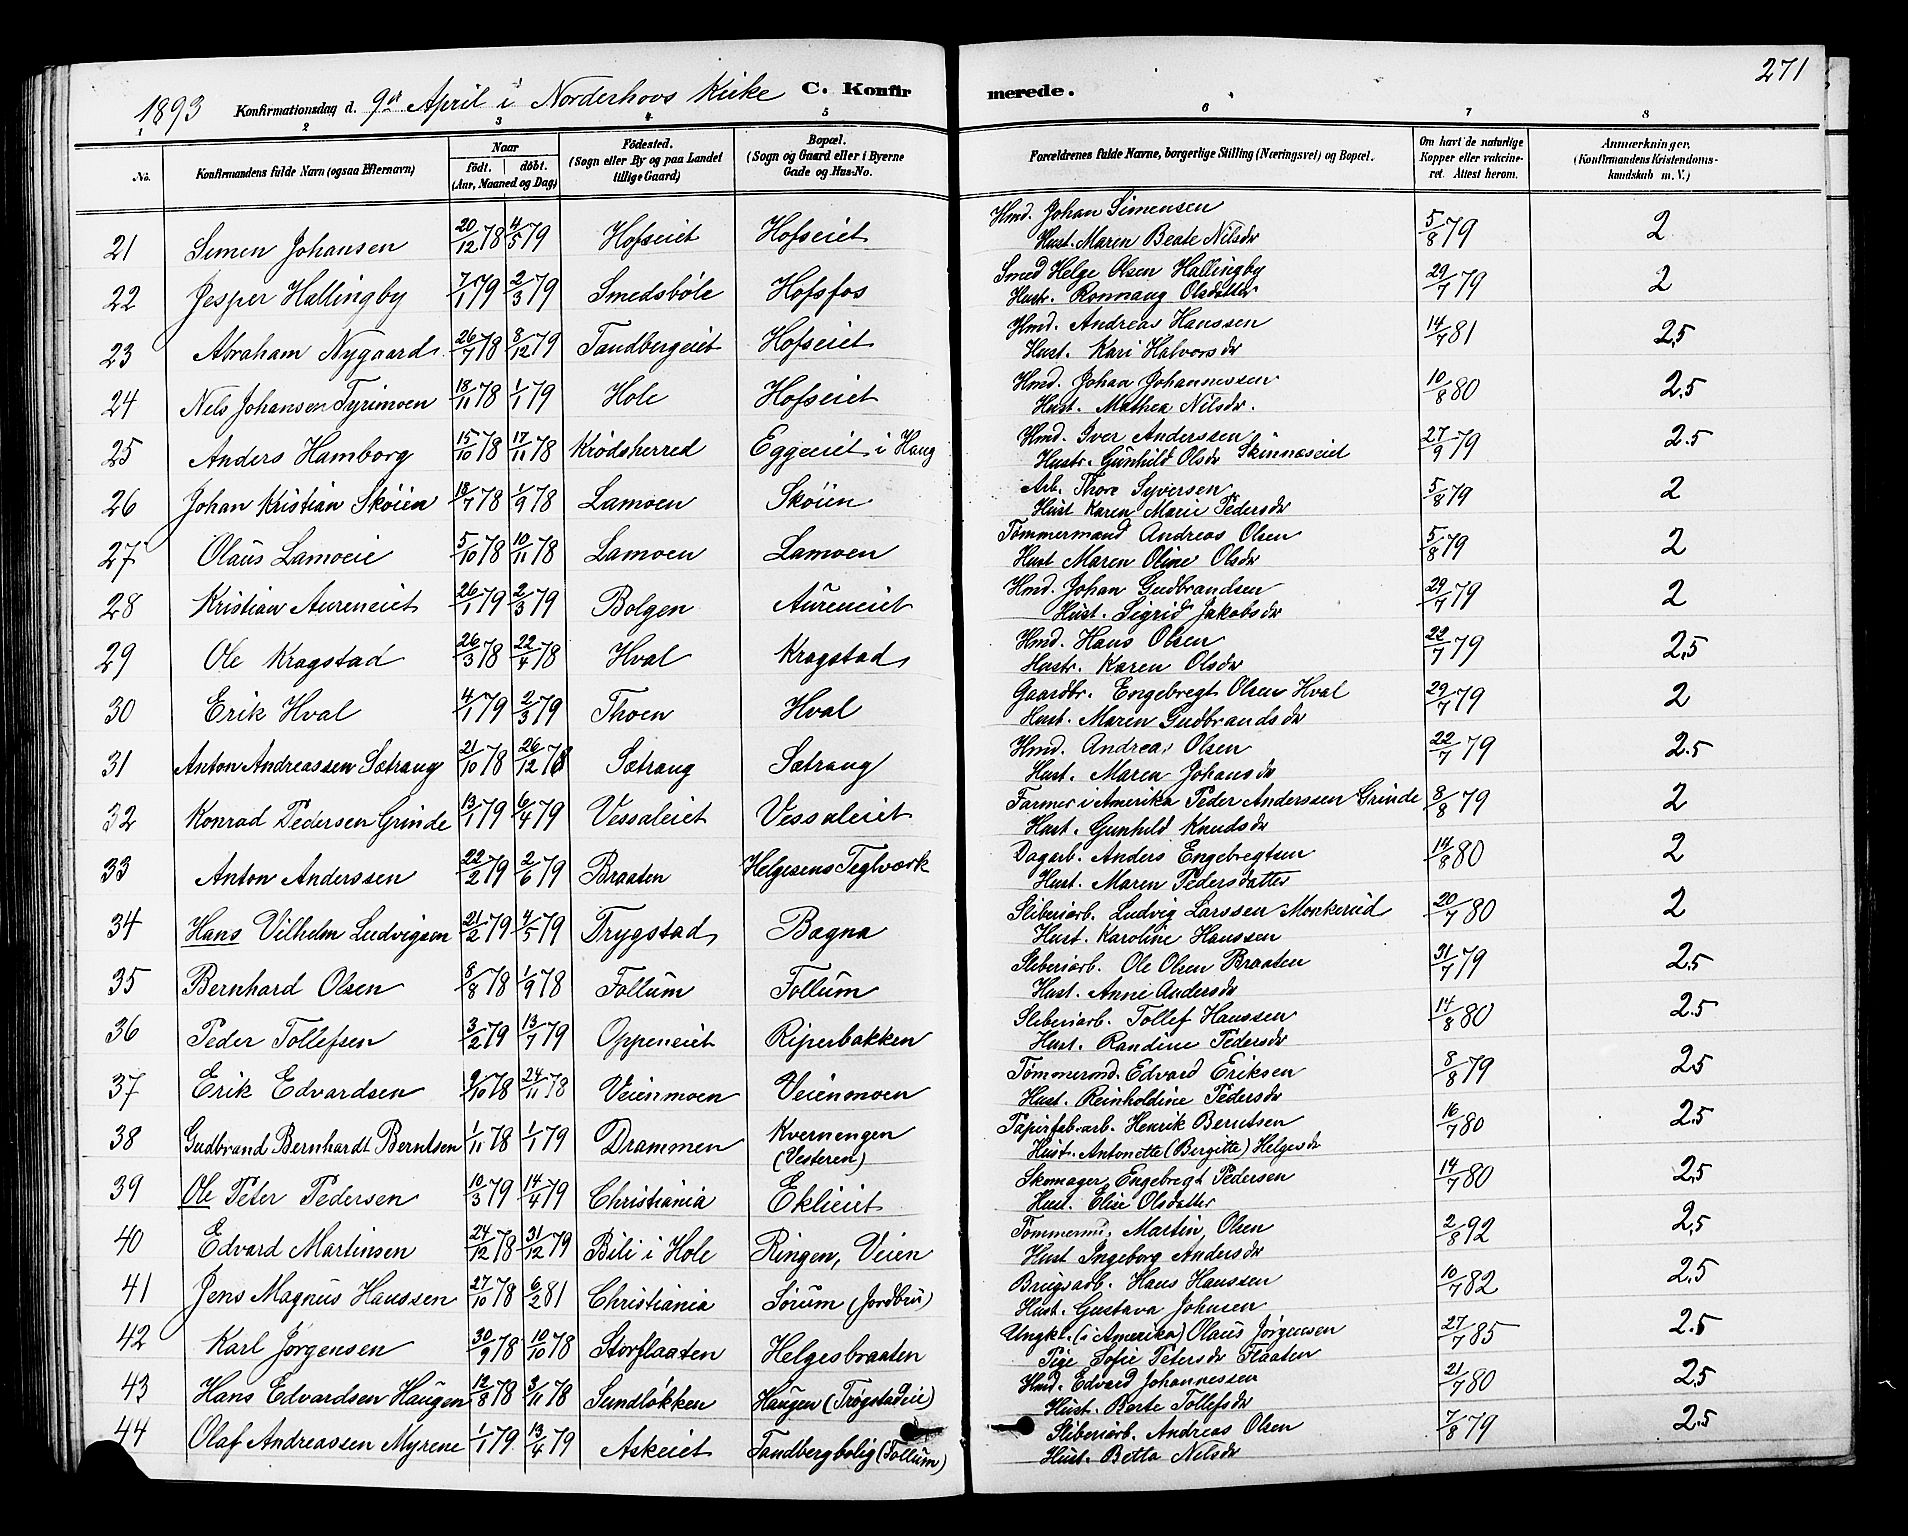 271
1893 Konfirmationsdag d. 9de April i Norderhovs Kirke C. Konfirmerede.
1 2 3 4 5 6 7 8
No. Konfirmandens fulde Navn (ogsaa Efternavn) Naar født. døbt. (Aar, Maaned og Dag) Fødested. (Sogn eller By og paa Landet tillige Gaard) Bopæl. (Sogn og Gaard eller i Byerne Gade og Hus-No. Forældrenes fulde Navne, borgerlige Stilling (Næringsvei) og Bopæl. Om havt de naturlige Kopper eller vakcineret. Attest herom. Anmærkninger. (Konfirmandens Kristendomskundskab m. V.)
21 Simen Johansen 20/12 78 4/5 79 Hofseiet Hofseiet Hmd. Johan Simensen 5/8 79 2
Hust. Maren Beate Nilsdr
22 Jesper Hallingby 7/1 79 2/3 79 Smedsbøle Hofsfos Smed Helge Olsen Hallingby 29/7 79 2
Hustr. Ronnaug Olsdatter
23 Abraham Nygaard 26/7 78 8/12 79 Tandbergeiet Hofseiet Hmd. Andreas Hanssen 14/7 81 2,5
Hust. Kari Halvorsdr
24 Nels Johansen Tyrimoen 18/11 78 1/1 79 Hole Hofseiet Hmd. Johan Johannessen 10/8 80 2,5
Hust. Mathea Nilsdr.
25 Anders Hamborg 15/10 78 17/11 78 Krødsherred Eggeeiet i Haug Hmd. Iver Anderssen 27/9 79 2.5
Hustr. Gunhild Olsdr Skinnæseiet
26 Johan Kristian Skøien 18/7 78 1/9 78 Lamoen Skøien Arb. Thore Syversen 5/8 79 2
Hust Karen Marie Pedersdr
27 Olaus Lamoeie 5/10 78 10/11 78 Lamoen Lamoen Tømmermand Andreas Olsen 5/8 79 2
Hust Maren Oline Olsdr
28 Kristian Aureneiet 26/1 79 2/3 79 Bolgen Aureneiet Hmd. Johan Gudbrandsen 29/7 79 2
Hust. Sigrid Jakobsdr
29 Ole Kragstad 26/3 78 22/4 78 Hval Kragstad Hmd. Hans Olsen 22/7 79 2,5
Hustr. Karen Olsdr
30 Erik Hval 4/1 79 2/3 79 Thoen Hval Gaardbr. Engebregt Olsen Hval 29/7 79 2
Hust. Maren Gudbrandsdr
31 Anton Andreassen Sætrang 21/10 78 26/12 78 Sætrang Sætrang Hmd. Andreas Olsen 22/7 79 2.5
Hust. Maren Johansdr
32 Konrad Pedersen Grinde 13/1 79 6/4 79 Vessaleiet Vessaleiet Farmer i Amerika Peder Anderssen Grinde 8/8 79 2
Hust. Gunhild Knudsdr
33 Anton Anderssen 22/2 79 2/6 79 Braaten Helgesens Teglværk Dagarb. Anders Engebregtsen 14/8 80 2
Hust. Maren Pedersdatter
34 Hans Vilhelm Ludvigsen 21/2 79 4/5 79 Trygstad Bagna Sliberiarb. Ludvig Larssen Monkerud 20/7 80 2
Hust. Karoline Hanssen
35 Bernhard Olsen 8/8 78 1/9 78 Follum Follum Sliberiarb. Ole Olsen Braaten 31/7 79 2.5
Hust. Anne Andersdr
36 Peder Tollefsen 3/2 79 13/7 79 Oppeneiet Riperbakken Sliberiarb. Tollef Hanssen 14/8 80 2.5
Hust. Randine Pedersdr
37 Erik Edvardsen 9/10 78 24/11 78 Veienmoen Veienmoen Tømmermd. Edvard Eriksen 8/8 79 2.5
Hust. Reinholdine Pedersdr
38 Gudbrand Bernhardt Berntsen 1/11 78 1/1 79 Drammen Kvernengen (Vesteren) Papirfab.arb. Henrik Berntsen 16/7 80 2.5
Hust. Antonette (Birgitte) Helgesdr
39 Ole Peter Pedersen 10/3 79 14/4 79 Christiania Eklieiet Skomager Engebregt Pedersen 14/7 80 2,5
Hust. Elise Olsdatter
40 Edvard Martinsen 24/12 78 31/12 79 Bili i Hole Ringen, Veien Tømmermd. Martin Olsen 2/8 92 2,5
Hust Ingeborg Andersdr
41 Jens Magnus Hanssen 27/10 78 6/2 81 Christiania Sørum (Jordbru) Brugsarb. Hans Hanssen 10/7 82 2,5
Hust. Gustava Johnsen
42 Karl Jørgensen 30/9 78 10/10 78 Storflaaten Helgesbraaten Ungkl. (i Amerika) Olaus Jørgensen 27/7 85 2.5
Pige Sofie Petersdr Flaaten
43 Hans Edvardsen Haugen 12/8 78 3/11 78 Sundløkken Haugen (Trøgstadeie) Hmd. Edvard Johannessen 21/7 80 2.5
Hust. Berte Tollefsdr
44 Olaf Andreassen Myrene 1/1 79 13/4 79 Askeiet Tandbergbolig (Follum) Sliberiarb. Andreas Olsen 7/8 79 2.5
Hust. Betta Nilsdr